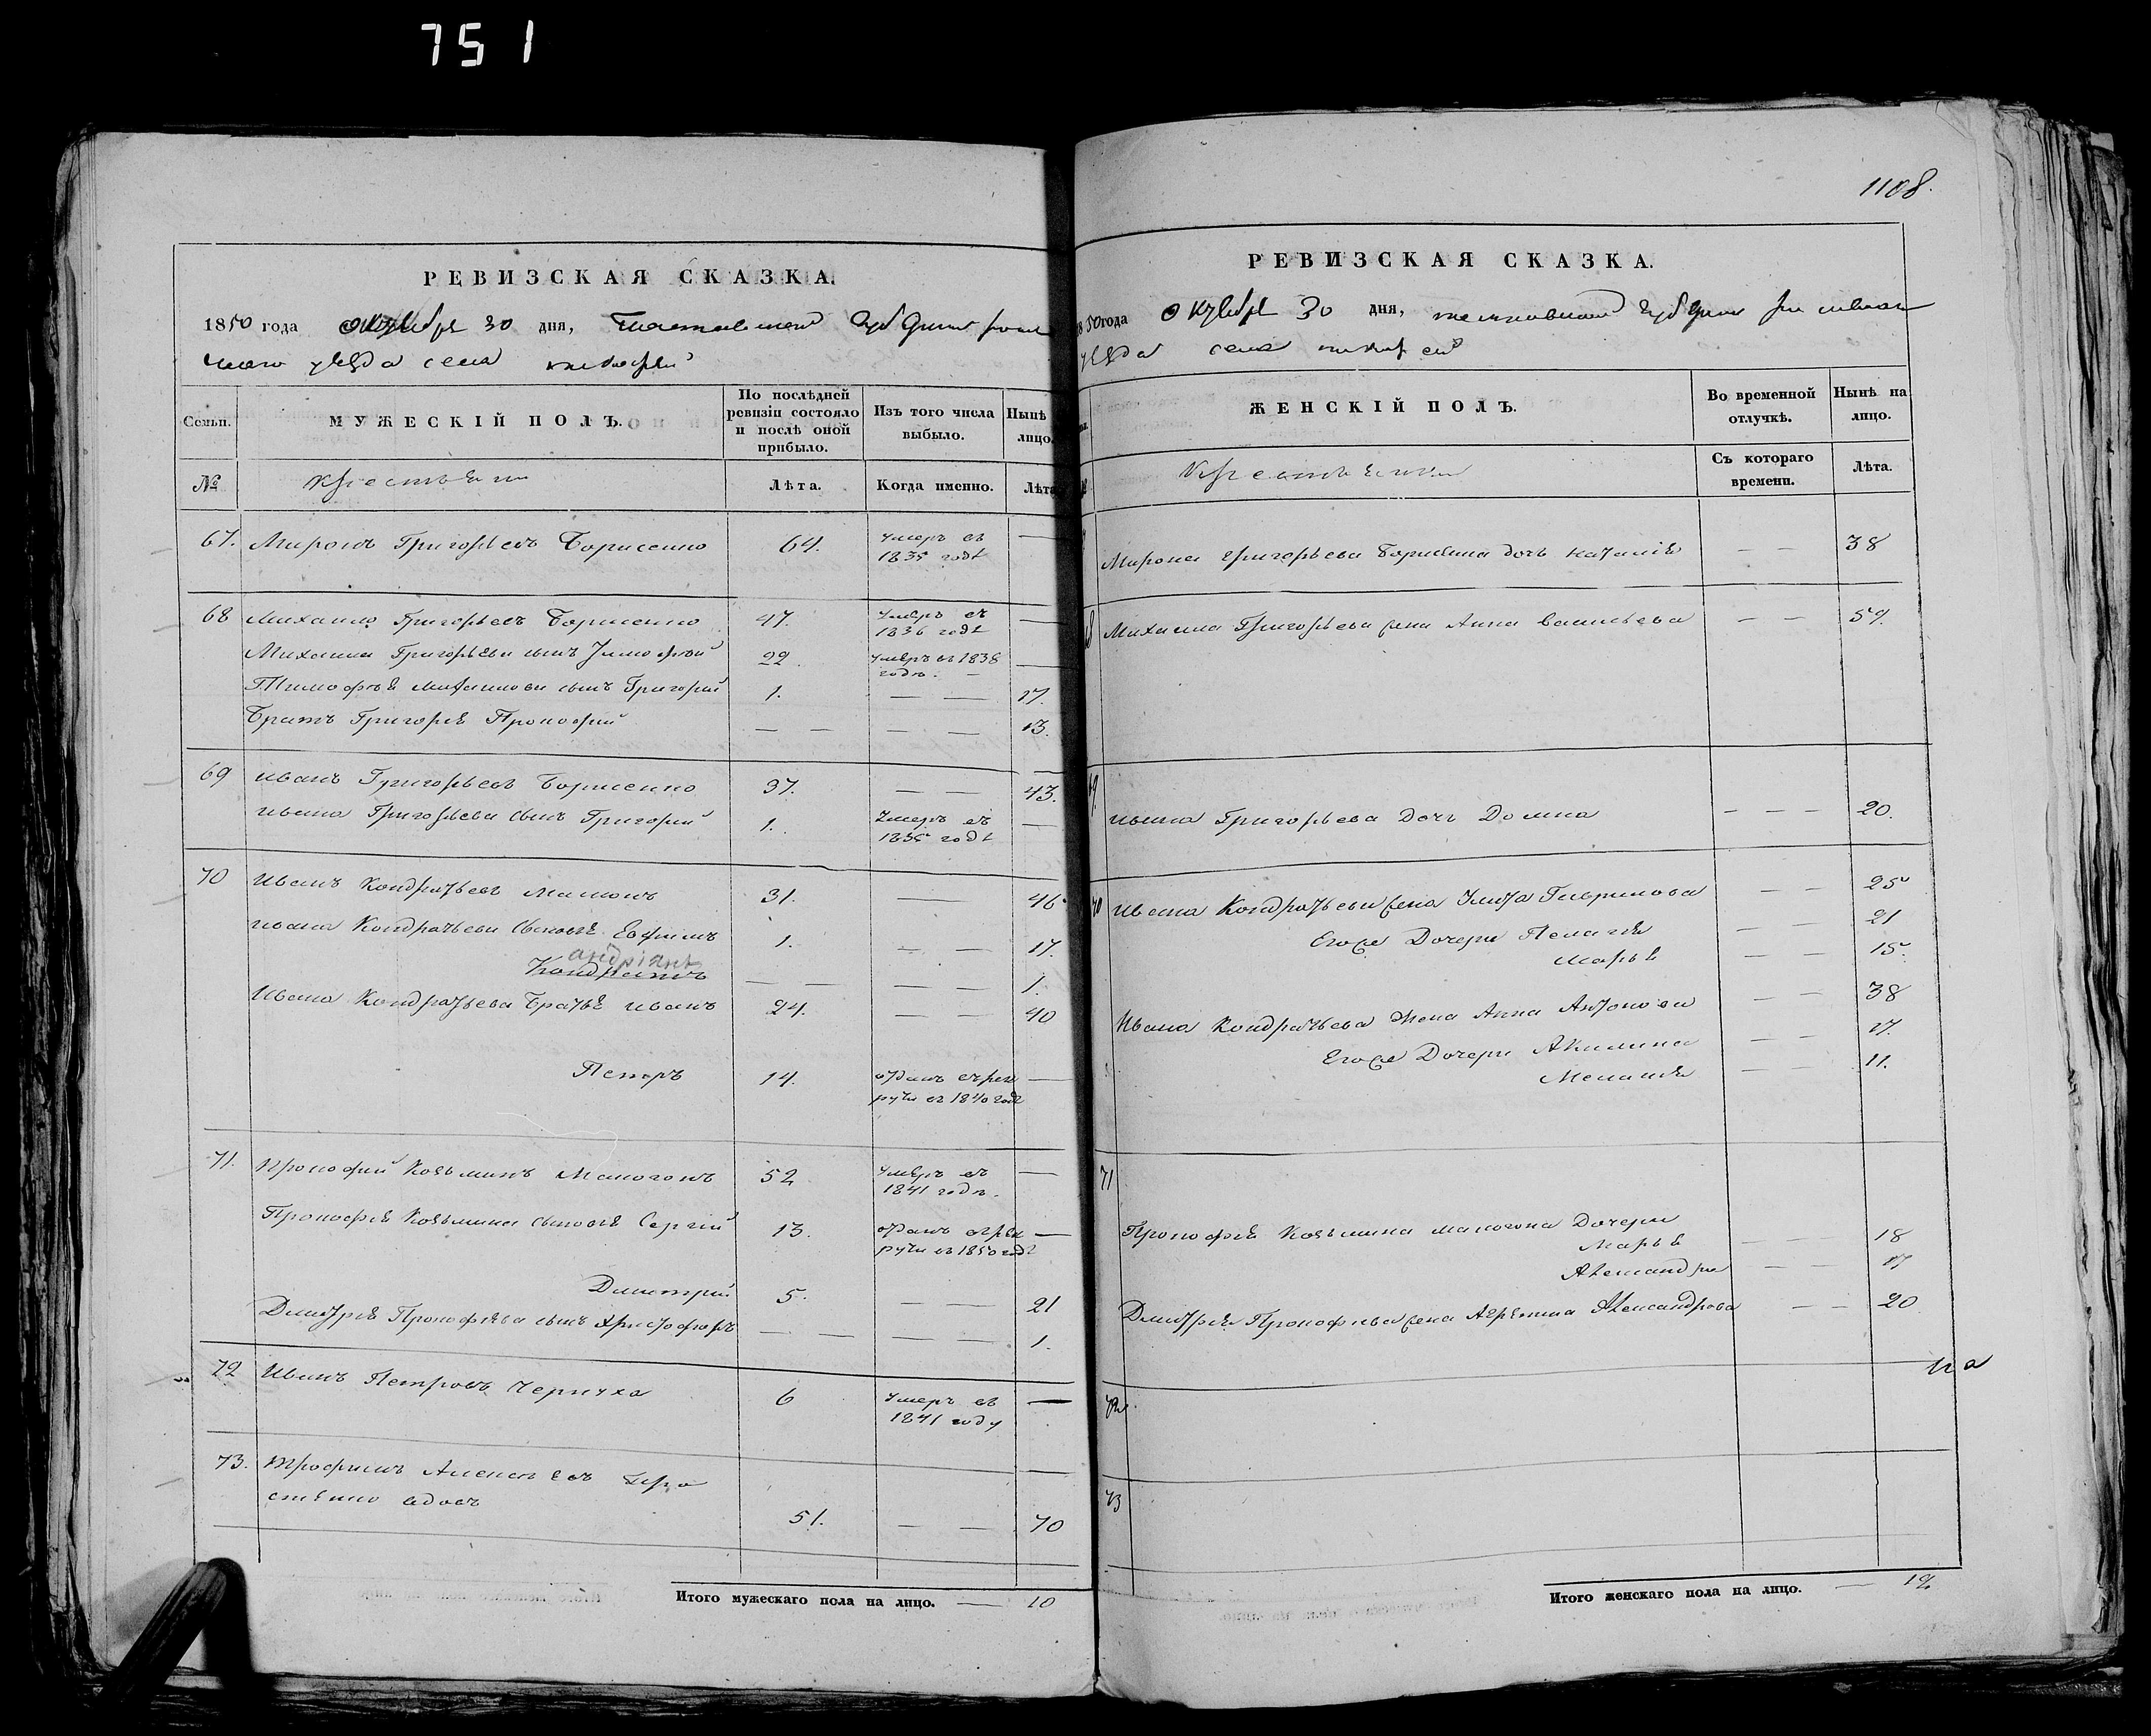 751
РЕВИЗСКАЯ СКАЗКА.
1850 года октября 30 дня, Полтавской Губернии
уезда села
Семьи.
МУЖЕСКІЙ ПОЛЪ.
По послѣдней ревизіи состояло и послѣ оной прибыло.
Изъ того числа выбыло.
Нынѣ лицо.
№
Крестьяне
Лѣта.
Когда именно.
Лѣта
67. Миронъ Григорьевъ Борисенко 64. умеръ въ 1835 годѣ —
68 Михаило Григорьевъ Борисенко 47. умеръ въ 1836 годѣ —
Михаила Григорьева сынъ Тимофѣй 22. умеръ въ 1838 годѣ. —
Тимофѣя Михайлова сынъ Григорій 1. — — 17.
Братъ Григорія Прокофій — — — — 13.
69 Иванъ Григорьевъ Борисенко 37. — — 43.
Ивана Григорьева сынъ Григорій 1. Умеръ въ 1835 годѣ —
70 Иванъ Кондратьевъ 31. — 46
Ивана Кондратьева сыновья Ефимъ 1. — — 17.
андріянъ
Кондратъ — — — — 1.
Ивана Кондратьева братья Иванъ 24. — — 40
Петръ 14. отданъ въ рекруты въ 1840 годѣ —
71. Прокофій Козьминъ Макогонъ 52 умеръ въ 1841 годѣ. —
Прокофія Козьмина сыновья Сергій 13. отданъ въ рекруты въ 1850 годѣ —
Дмитрій 5. — — 21
Дмитрія Прокофьева сынъ Христофоръ — — — — 1.
72 Иванъ Петровъ Черниха 6 умеръ въ 1841 году —
73. Трофимъ Алексѣевъ
вдовъ 51. — — 70
Итого мужескаго пола на лицо. — 10
1108.
РЕВИЗСКАЯ СКАЗКА.
1850 года Октября 30 дня, Полтавской Губерніи
уѣзда села
ЖЕНСКІЙ ПОЛЪ.
Во временной отлучкѣ.
Нынѣ на лицо.
Крестьянки
Съ котораго времени.
Лѣта.
Мирона Григорьева Борисенка дочь Наталія — — 38
68 Михаила Григорьева жена Анна Васильева — — 59.
69 Ивана Григорьева Дочь Домна — — — 20.
70 Ивана Кондратьева жена Улита Гаврилова — — 25
Егоже Дочери Пелагія — — 21
Марья — — 15.
Ивана Кондратьева жена Анна Антонова — — 38
Егоже Дочери Акилина — — 17.
Меланія — — 11.
71
Прокофія Козьмина Макогона Дочери
Марья — — 18
Александра — — 17
Дмитрія Прокофьева жена Агрипина Александрова — — 20
72.
73
Итого женскаго пола на лицо. — 12